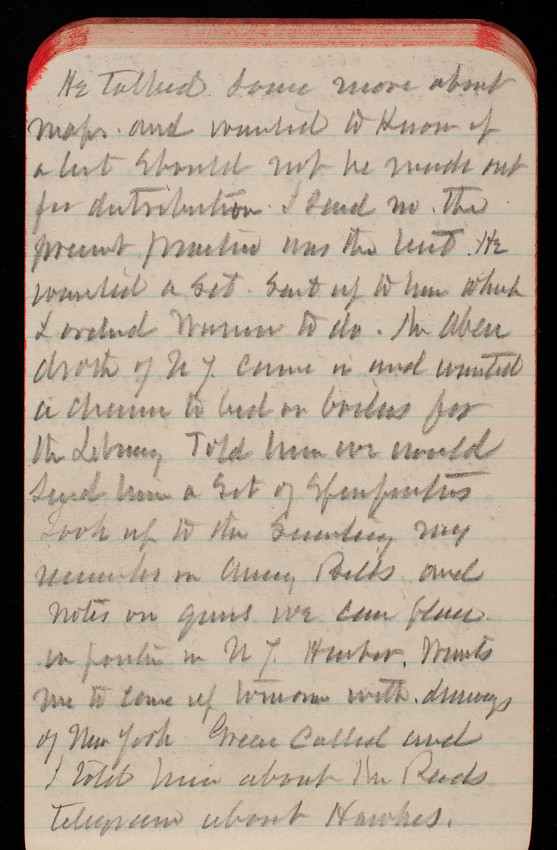 He talked some more about
maps and wanted to know if
a list should not be made out
for distribution. I said no. the
present practice was the best. He
wanted a set sent up to him which
I ordered Warren to do. Mr Aben
droth of N Y. came in and wanted
a chance to bid on boilers for
the Library Told him we would
send him a set of Specifications
Took up to the Secretary my
remarks on Army Bills and
notes on guns we can place
in position in N Y. Harbor. Wants
me to come up tomorrow with drawings
of New York Green called and
I told him about the
telegram about Hawkes.